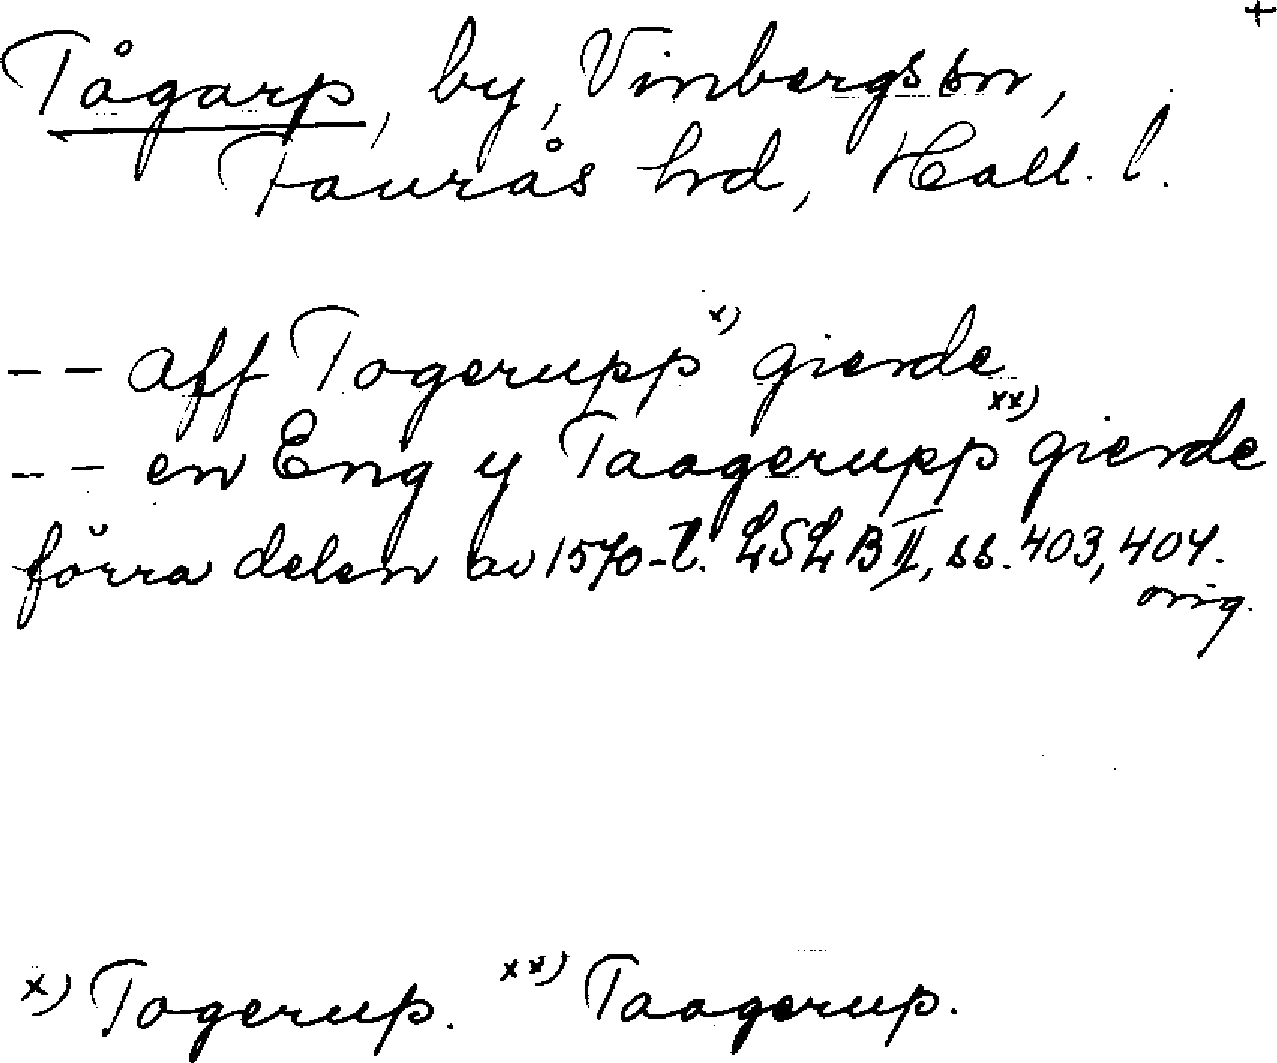 +
Tågarp, by, Vinbergs sn,
Faurås hrd, Hall. l.
-- aff Togerupp x) gierde
-- en Eng y Taagerupp xx) gierde
förra delen av 1570-t. LSLB II, ss. 403, 404.
orig.
x) Togerup. xx) Taagerup.